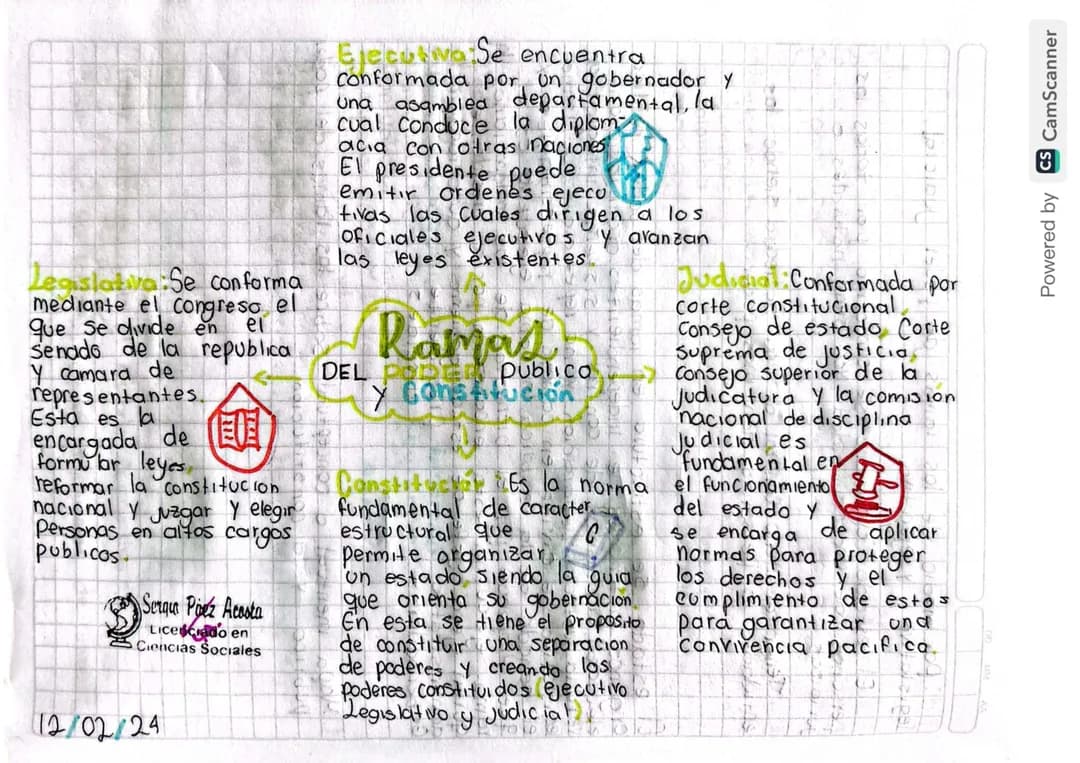 Ejecutiva: Se encuentra
conformada por un gobernador y
una asamblea departamental, la
cual conduce la diplom-
acia con otras naciones
El presidente puede
emitir ordenes ejecu
tivas las cuales dirigen a los
oficiales ejecutivos y avanzan
las leyes existentes.
Legislativa: Se conforma
mediante el congreso, el
que se divide en el
senado de la republica
y camara de
representantes.
Esta es la
encargada de
formular leyes,
reformar la constitucion
nacional y juzgar y elegir
personas en altos cargos
publicos.
Ramas
DEL PODER PUBLICO
y Constitución
Judicial: Conformada por
corte constitucional,
Consejo de estado, Corte
suprema de justicia,
consejo superior de la
judicatura y la comision
nacional de disciplina
judicial, es
fundamental en
el funcionamiento
del estado y
se encarga de aplicar
normas para proteger
los derechos y el
cumplimiento de estos
para garantizar una
convivencia pacifica.
Constitución: Es la norma
fundamental de caracter
estructural que
permite organizar
un estado, siendo la guia
que orienta su gobernación.
En esta se tiene el proposito
de constituir una separacion
de poderes y creando los
poderes constituidos (ejecutivo
Legislativo y judicial).
C
Páez Acosta
Licenciado en
Ciencias Sociales
12/02/24
Powered by CS CamScanner